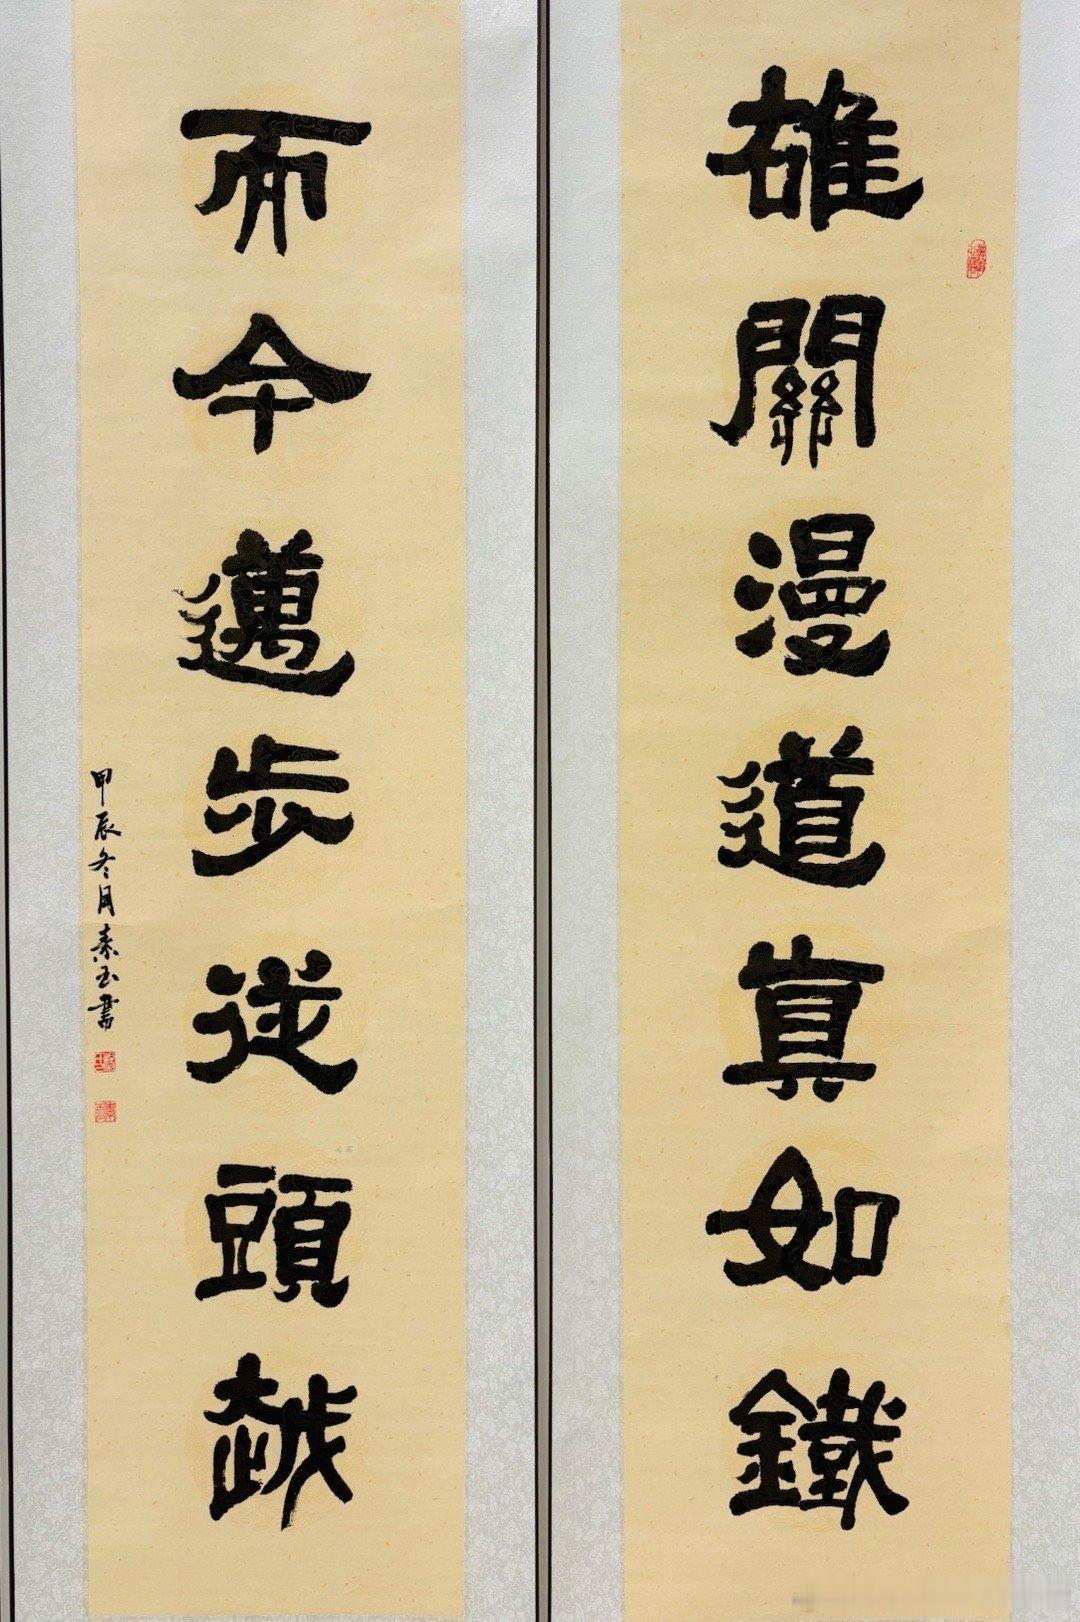 雄關漫道真如鐵
而今邁步從頭越
甲辰冬月素玉書